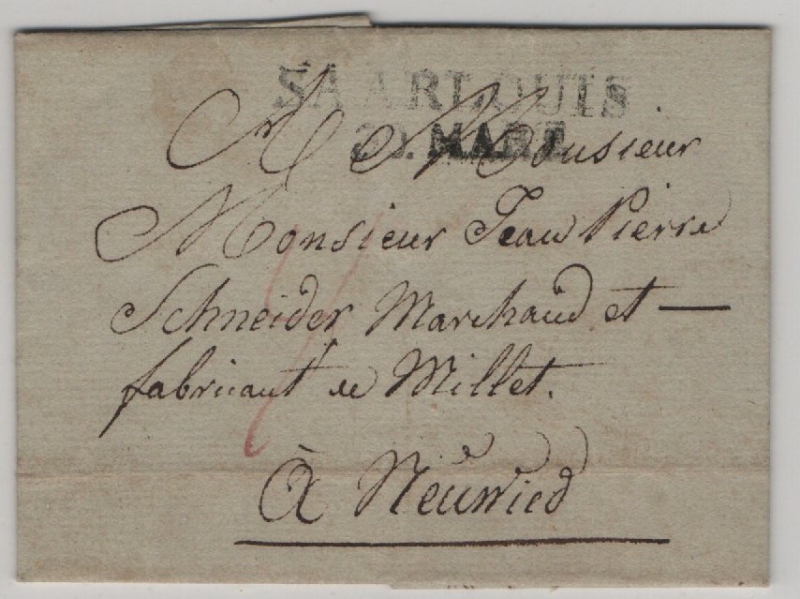 SAARLOUIS
20. MÄRZ
A Monsieur
Monsieur Jean Pierre
Schneider Marchand et —
fabricant de Millet.
À Neuwied